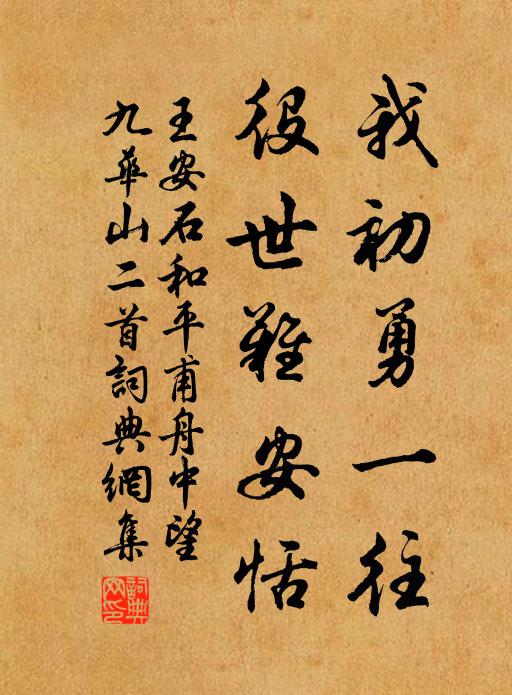 我初勇一往
役世難安恬
王安石和平甫舟中望
九華山二首詞典網集
詞典
網印